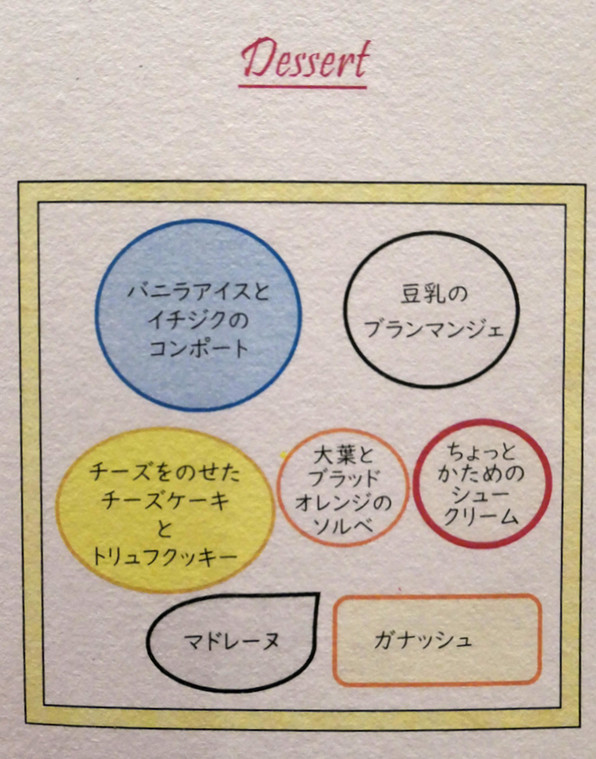 Dessert
バニラアイスと
イチジクの
コンポート
豆乳の
ブランマンジェ
チーズをのせた
チーズケーキ
と
トリュフクッキー
大葉と
ブラッド
オレンジの
ソルベ
ちょっと
かための
シュー
クリーム
マドレーヌ
ガナッシュ